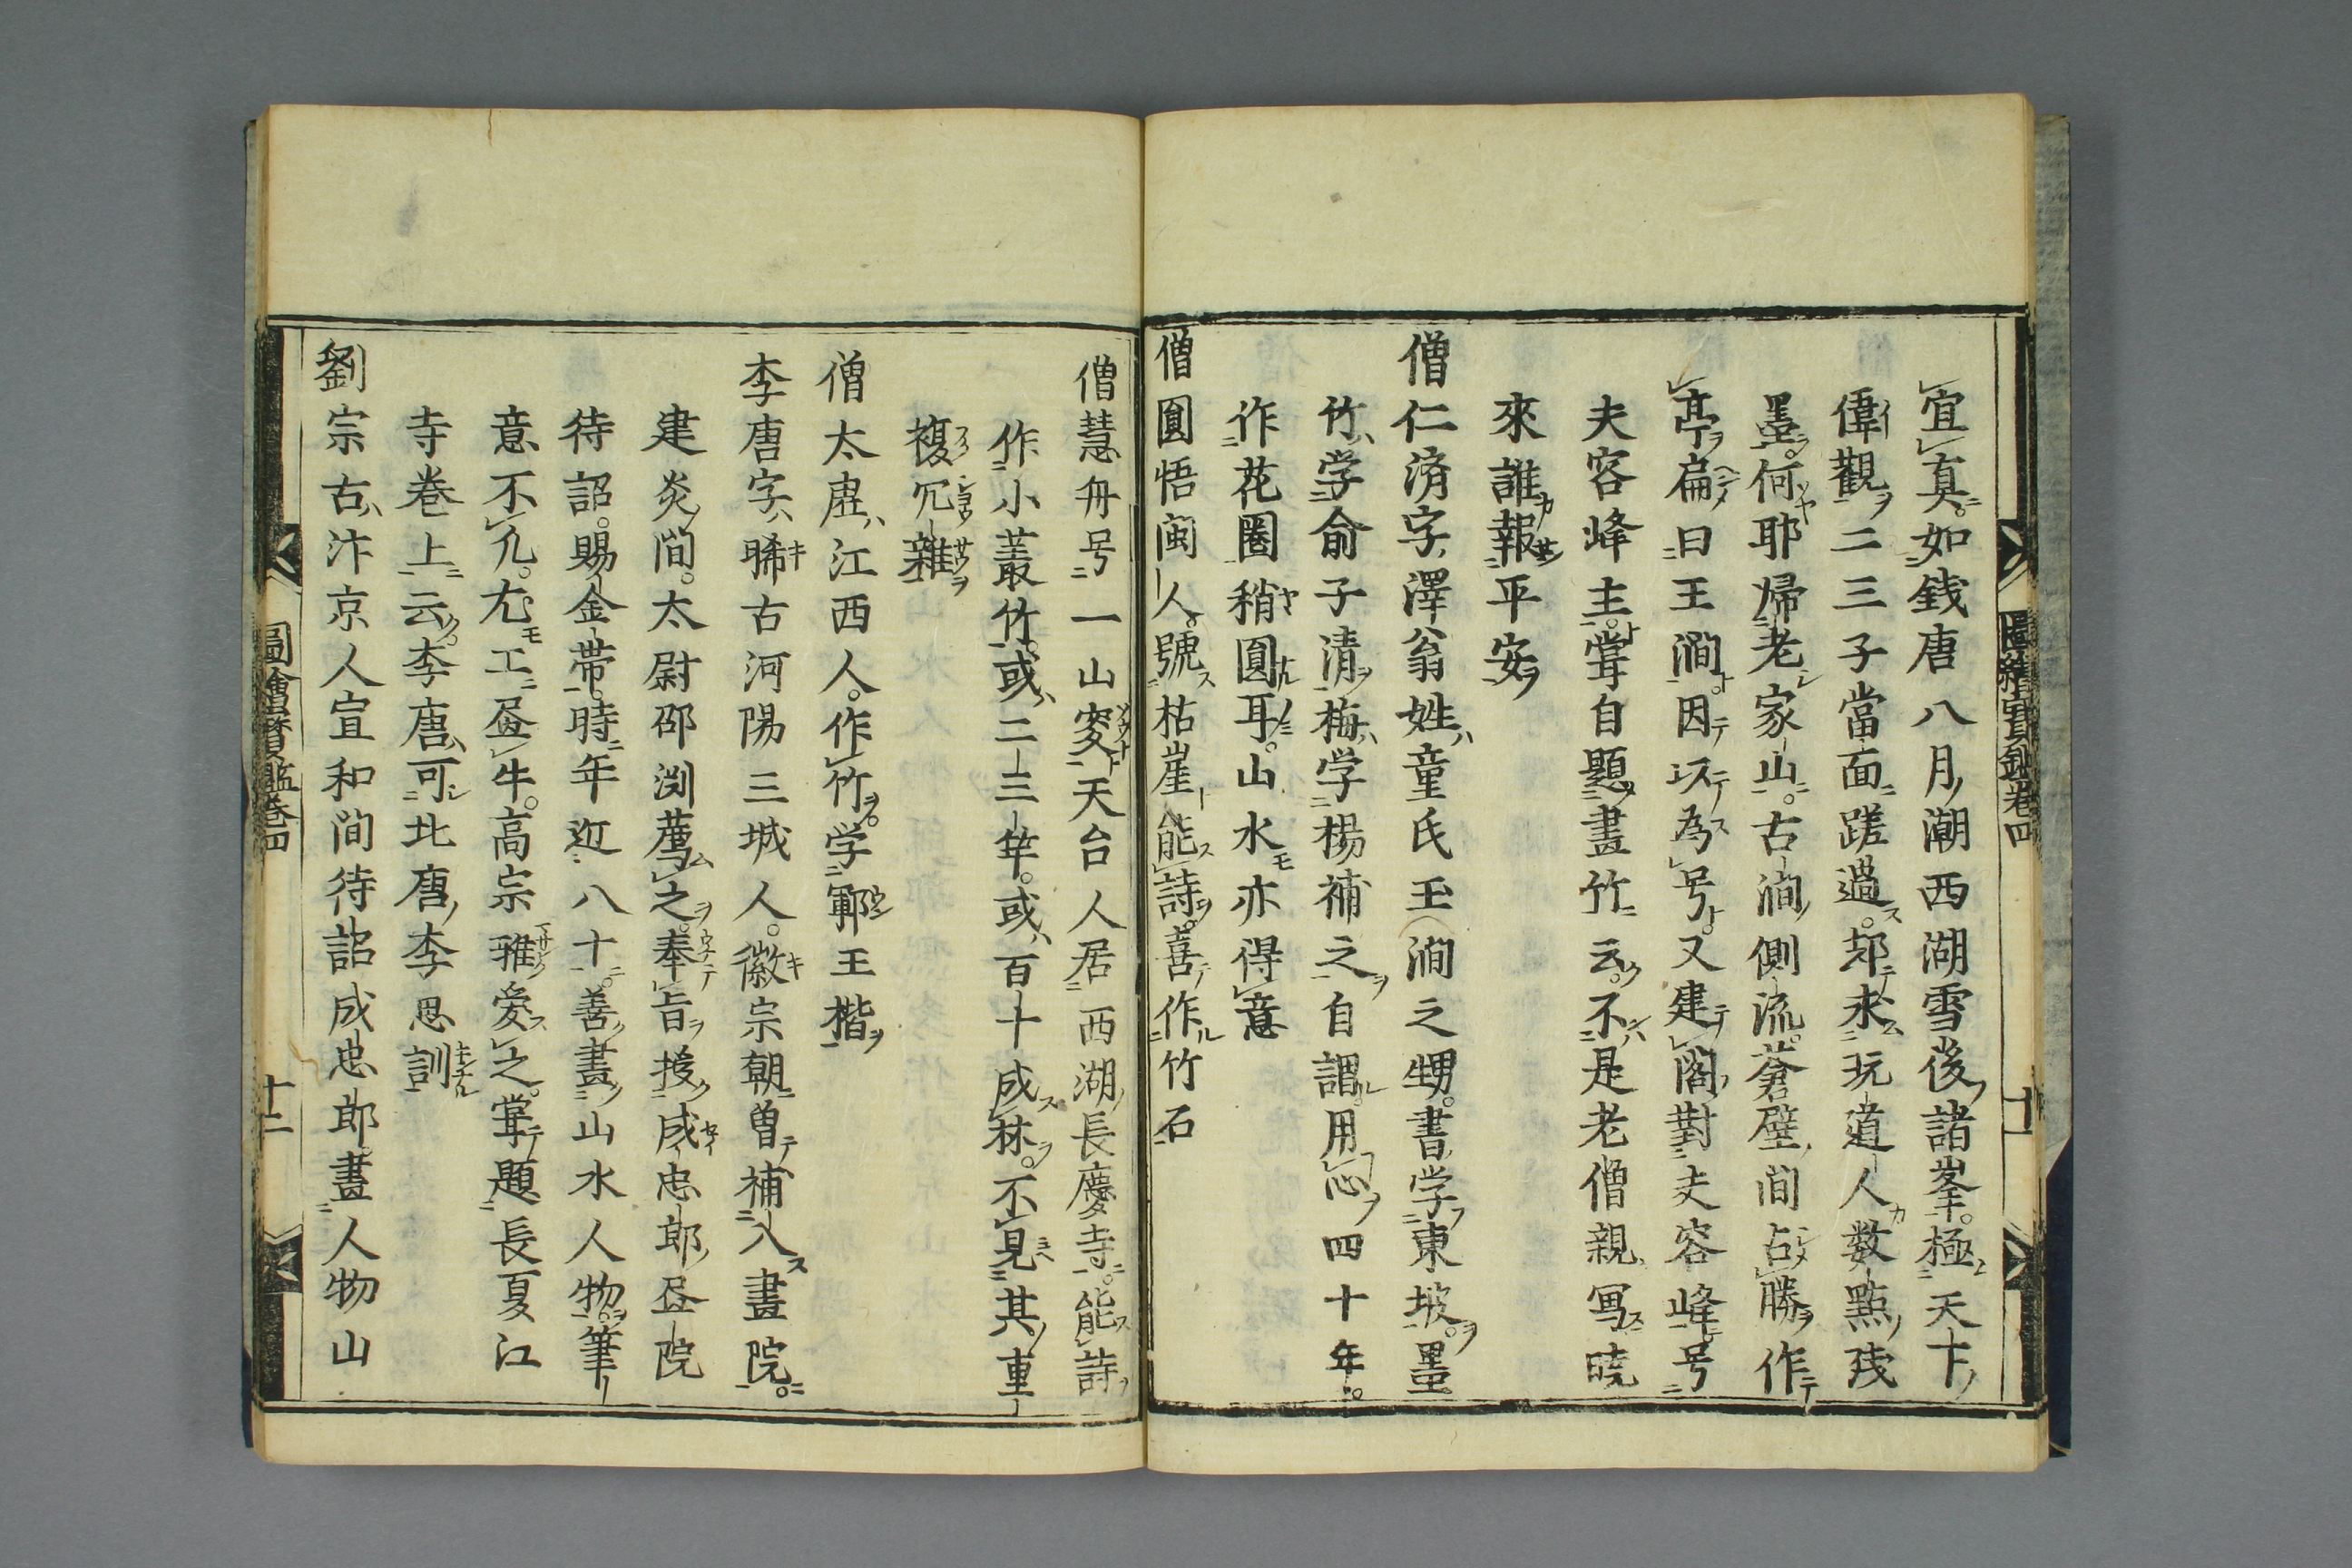 宜真如銭唐八月潮西湖雪後諸峯極天下
偉觀二三子當面蹉過却求玩道人数點残
墨何耶帰老家山古澗側流蒼壁間占勝作
亭扁曰王澗因以為号又建閣對夫容峰号
夫容峰主甞自題畫竹云不是老僧親写暁
來誰報平安
僧仁済字澤翁姓童氏玉澗之甥書学東坡墨
竹学俞子清梅学楊補之自謂用心四十年
作花圏稍圓耳山水亦得意
僧圓悟閩人號枯崖能詩喜作竹石
圖繪寳鑑卷四
十一
僧慧舟号一山叜天台人居西湖長慶寺能詩
作小叢竹或二三竿或百十成林不見其重
複冗雜
僧太虚江西人作竹学鄆王楷
李唐字晞古河陽三城人徽宗朝曽補入畫院
建炎間太尉邵渕薦之奉旨授成忠郎畫院
待詔賜金帯時年近八十善畫山水人物筆
意不凢尤工畫牛高宗雅愛之甞題長夏江
寺卷上云李唐可比唐李思訓
劉宗古汴京人宣和間待詔成忠郎畫人物山
圖繪寳鑑卷四
十二